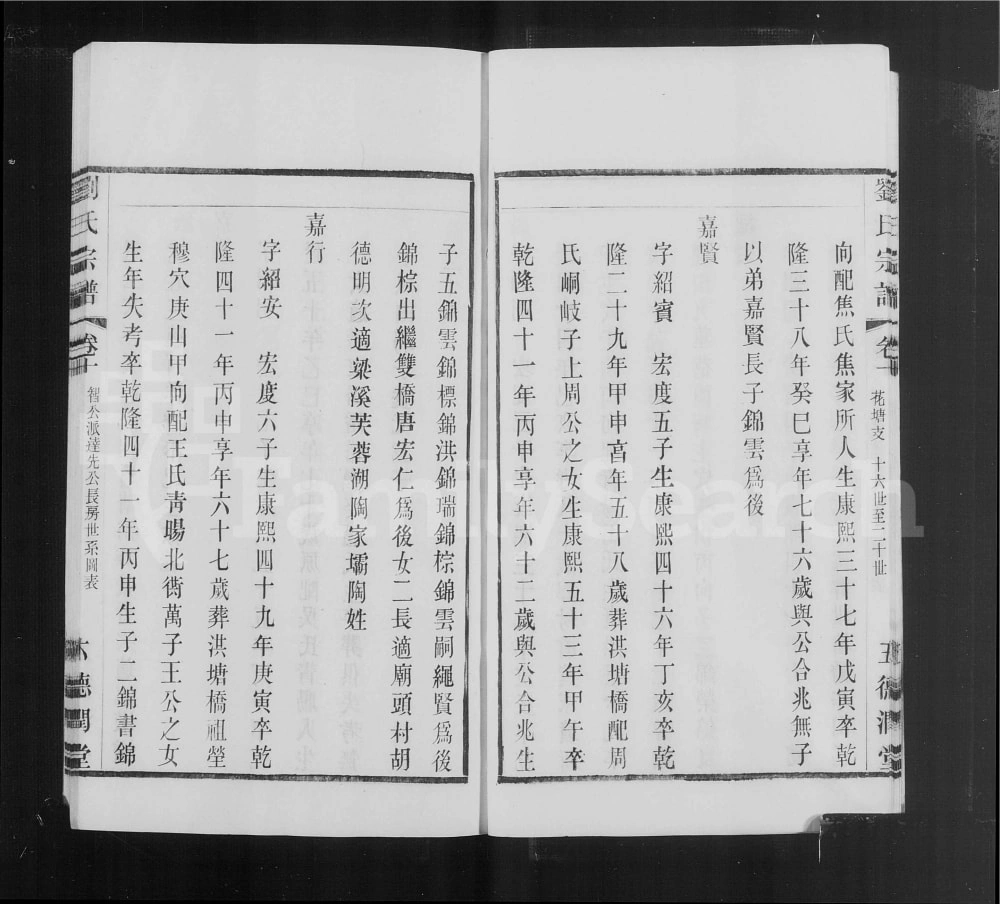 劉氏宗譜 卷十 花塘支 十六世至二十世 五 德潤堂
向配焦氏焦家所人生康熙三十七年戊寅卒乾
隆三十八年癸巳享年七十六歲與公合兆無子
以弟嘉賢長子錦雲爲後
嘉賢
字紹賓 宏度五子生康熙四十六年丁亥卒乾
隆二十九年甲申享年五十八歲葬洪塘橋配周
氏峒岐子上周公之女生康熙五十三年甲午卒
乾隆四十一年丙申享年六十三歲與公合兆生
子五錦雲錦標洪錦瑞錦棕錦雲嗣繩賢爲後
錦棕出繼雙橋唐宏仁爲後女二長適廟頭村胡
德明次適梁溪芙蓉湖陶家壩陶姓
嘉行
字紹安 宏度六子生康熙四十九年庚寅卒乾
隆四十一年丙申享年六十七歲葬洪塘橋祖塋
穆穴庚山甲向配王氏青暘北衖萬子王公之女
生年失考卒乾隆四十一年丙申生子二錦書錦
劉氏宗譜 卷十 智公派達先公長房世系圖表 六 德潤堂
FamilySearch